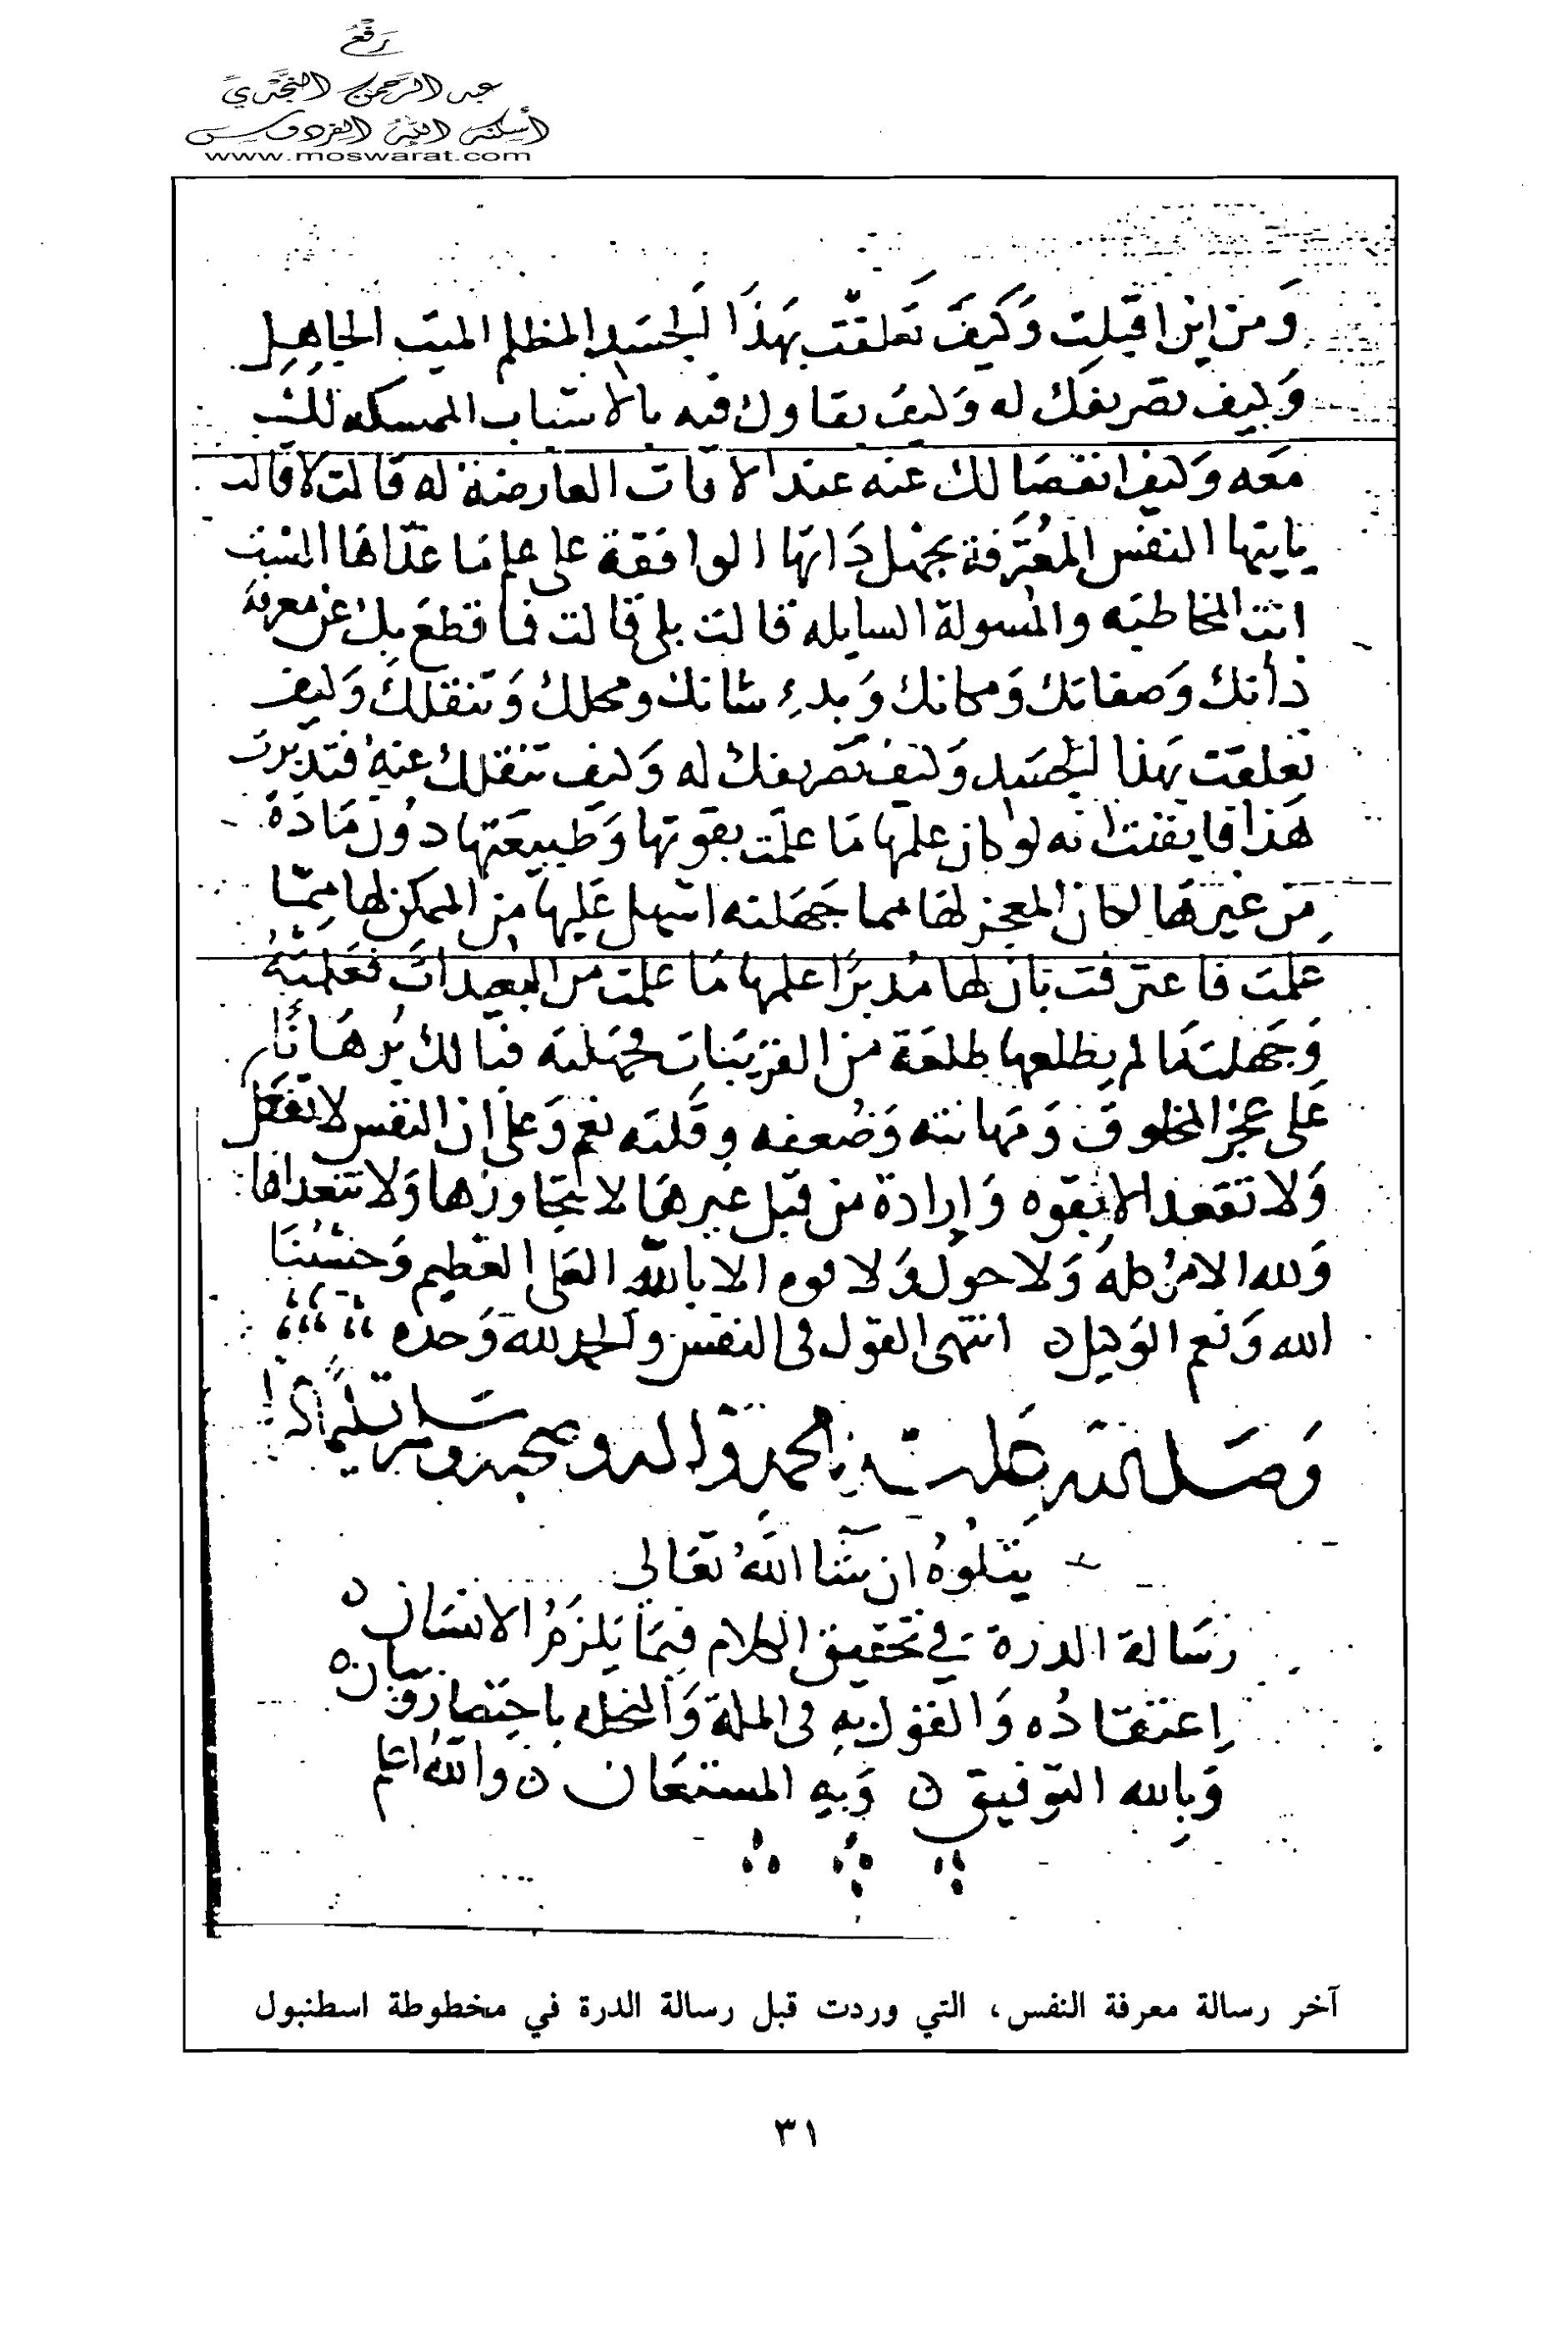 رفع
عبد الرحمن النجدي
أسكنه الله الفردوس
www.moswarat.com
وَمن اين اقبلت وَكيفَ تَعلقت بهذَا الجسَد المظلم الميت الجاهِل
وَكيف تصريفك له وَكيف بقاوك فيه بالاسباب الممسكه لك
معَه وَكيف انفصَالك عنه عند الافات العارضة له قالت لا قالت
يايتها النفس المعُترفة بجهل ذَاتها الواقفة على علم مَا عدَاهَا الست
انت المخاطبَه والمسولة السايله قالت بلى قالت فاقطعَ بك عَن معرفة
ذاتك وَصفاتك وَمكانك وَبدءِ شانك ومحلك وَتنقلك وَكيف
تعلقت بهذا الجسَد وَكيف تصريفك له وَكيف تنقلك عنه فتدبرت
هَذا فايقنت انه لو كان علمها مَا علمَت بقوتها وَطبيعَتها دوُن مَادة
مِن غيرهَا لكان المعجز لهَا مما جَهَلته اسهل عَليها من الممكن لها مِمّا
علمَت فاعترفت بَان لها مُدبرًا علمها مَا علمت من البعيدات فعَلمتهُ
وَجَهلت مَا لم يطلعها طلعَه من القريبَات فجهلته فيا لك بُرهَانًا
عَلى عجز المخلوق وَمَهانته وَضُعفه وقلته نعم وَعلى ان النفس لا تفعَل
وَلا تقعد الا بقوه وَإرادة من قبل غيرهَا لا تتجاوزها وَلا تتعداها
وَلله الامرُ كله وَلا حول وَلا قوه الا بالله العَلى العَظيم وَحسبُنَا
الله وَنعم الوَكيل ن انتهى القول فى النفس والحمد لله وَحده
وَصَلى الله عَلى سيدنا محمد وَاله وصحبه وسلم تسليمًا
يَتلوُهُ ان شَا اللّهُ تعَالى
رسَالة الدرة فِي تحقيق الكلام فيمَا يَلزمُ الانسَان
إعتقادُه وَالقول بِهِ فى الملة وَالنحله باختصَار وَبيان
وَبِالله التوفيق ن وَبِهِ المستعَان ن واللّهُ اعلم
آخر رسالة معرفة النفس، التي وردت قبل رسالة الدرة في مخطوطة اسطنبول
٣١